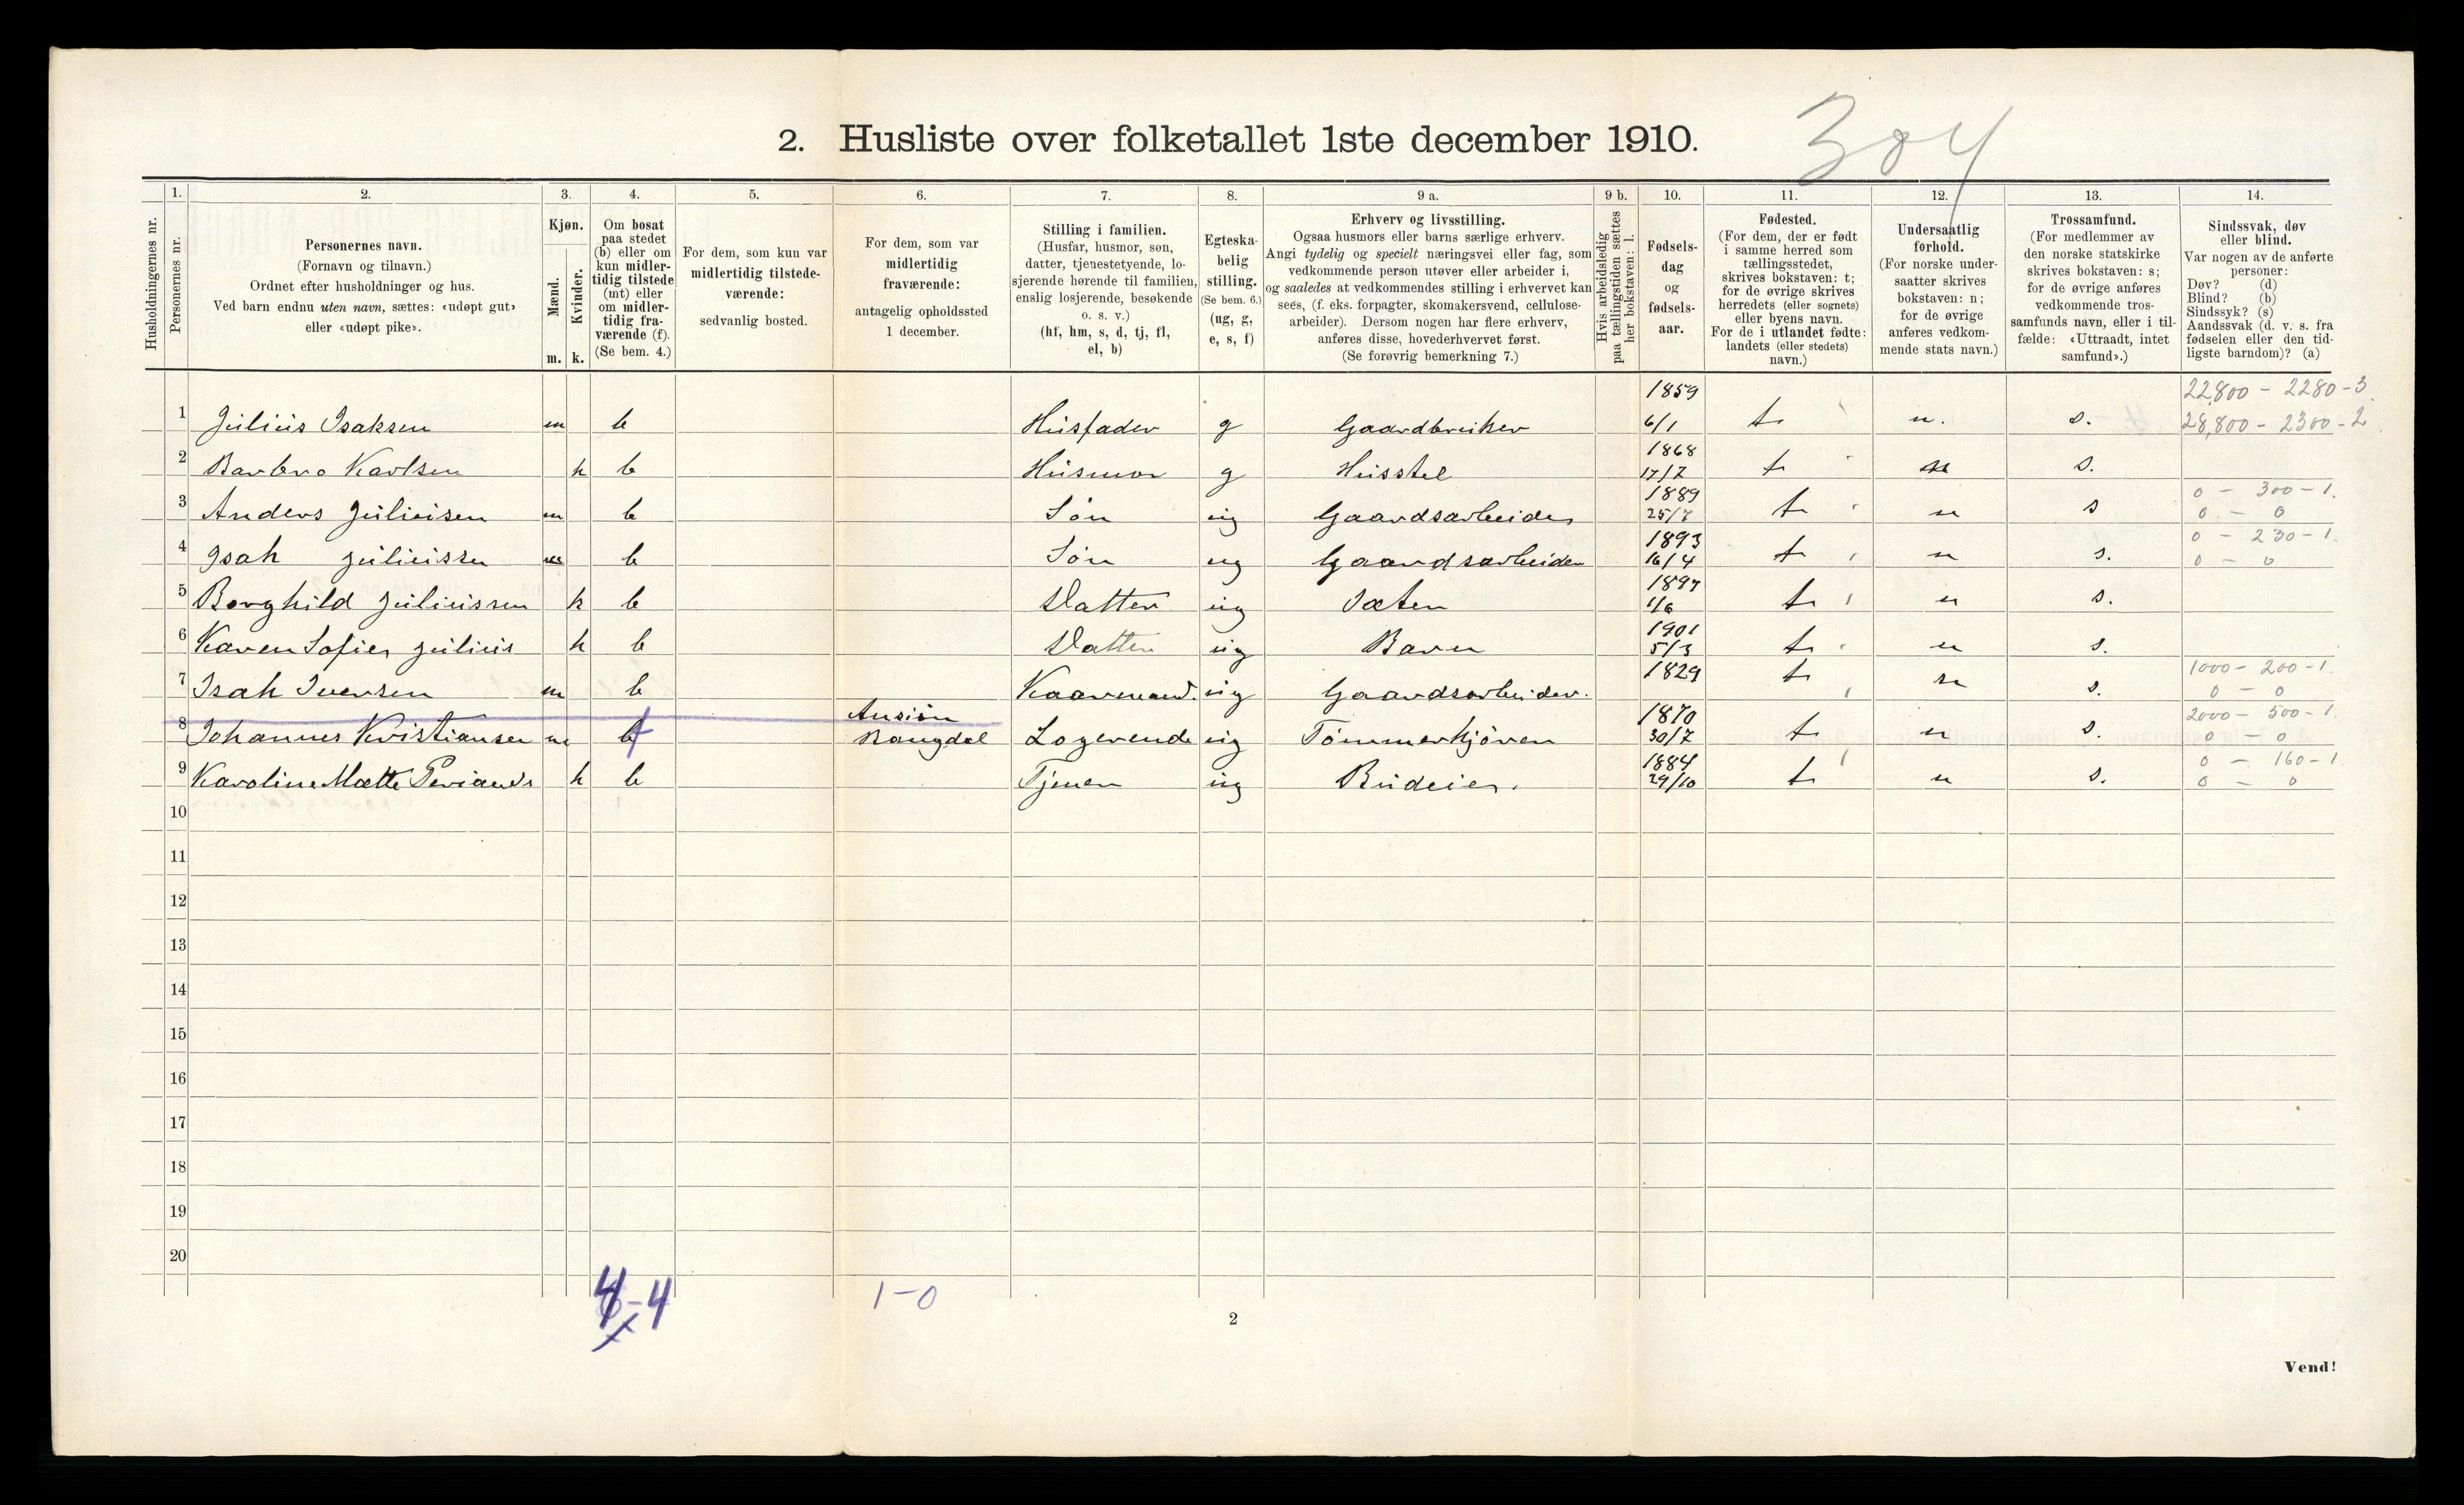 304
2. Husliste over folketallet 1ste december 1910.
Husholdningernes nr.
1.
Personernes nr.
2.
Personernes navn.
(Fornavn og tilnavn.)
Ordnet efter husholdninger og hus.
Ved barn endnu uten navn, sættes: «udøpt gut»
eller «udøpt pike».
3.
Kjøn.
Mænd.
Kvinder.
m. k.
4.
Om bosat
paa stedet
(b) eller om
kun midler-
tidig tilstede
(mt) eller
om midler-
tidig fra-
værende (f).
(Se bem. 4.)
5.
For dem, som kun var
midlertidig tilstede-
værende:
sedvanlig bosted.
6.
For dem, som var
midlertidig
fraværende:
antagelig opholdssted
1 december.
7.
Stilling i familien.
(Husfar, husmor, søn,
datter, tjenestetyende, lo-
sjerende hørende til familien,
enslig losjerende, besøkende
o. s. v.)
(hf, hm, s, d, tj, fl,
el, b)
8.
Egteska-
belig
stilling.
(Se bem. 6.)
(ug, g,
e, s, f)
9 a.
Erhverv og livsstilling.
Ogsaa husmors eller barns særlige erhverv.
Angi tydelig og specielt næringsvei eller fag, som
vedkommende person utøver eller arbeider i,
og saaledes at vedkommendes stilling i erhvervet kan
sees, (f. eks. forpagter, skomakersvend, cellulose-
arbeider). Dersom nogen har flere erhverv,
anføres disse, hovederhvervet først.
(Se forøvrig bemerkning 7.)
9 b.
Hvis arbeidsledig
paa tællingstiden sættes
her bokstaven: l.
10.
Fødsels-
dag
og
fødsels-
aar.
11.
Fødested.
(For dem, der er født
i samme herred som
tællingsstedet,
skrives bokstaven: t;
for de øvrige skrives
herredets (eller sognets)
eller byens navn.
For de i utlandet fødte:
landets (eller stedets)
navn.)
12.
Undersaatlig
forhold.
(For norske under-
saatter skrives
bokstaven: n;
for de øvrige
anføres vedkom-
mende stats navn.)
13.
Trossamfund.
(For medlemmer av
den norske statskirke
skrives bokstaven: s;
for de øvrige anføres
vedkommende tros-
samfunds navn, eller i til-
fælde: «Uttraadt, intet
samfund».)
14.
Sindssvak, døv
eller blind.
Var nogen av de anførte
personer:
Døv? (d)
Blind? (b)
Sindssyk? (s)
Aandssvak (d. v. s. fra
fødselen eller den tid-
ligste barndom)? (a)
1859 22,800 - 2280-3
1 Julius Isaksen m b Husfader g Gaardbruker 6/1 t n. s. 28,800 - 2300-2
1868
2 Barbro Karlsen k b Husmor g Husstel 17/7 t n s.
1889 0 - 300-1.
3 Anders Juliusen m b Søn ug Gaardsarbeider 25/7 t n s 0 - 0
1893 0 - 230-1.
4 Isak Juliussen m b Søn ug Gaardsarbeider 16/4 t n s. 0 - 0
1897
5 Borghild Juliussen k b Datter ug 1/6 t n s.
1901
6 Karen Sofies Julius k b Datter ug Barn 5/3 t n s.
1829 1000 - 200-1.
7 Isak Iversen m b Kaarmand. ug Gaardsarbeider. t n s. 0 - 0
1870 2000 - 500-1.
8 Johannes Kristiansen m b f Losjerende ug Tömmerkjören 30/7 t n s. 0 - 0
1884 0 - 160-1
9 Karoline Mætte k b Tjener ug Budeier. 29/10 t n s. 0 - 0
10
11
12
13
14
15
16
17
18
19
20
4-4 1-0
2
Vend!